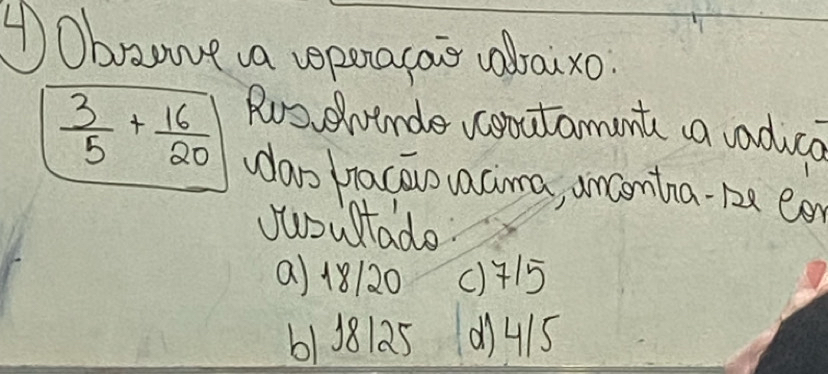 4) Observe a operação abaixo:
3/5 + 16/20 Resolvendo corretamente a
das frações acima, encontra-se
resultado:
a) 18/20 c) 7/5
b) 18/25 d) 4/5